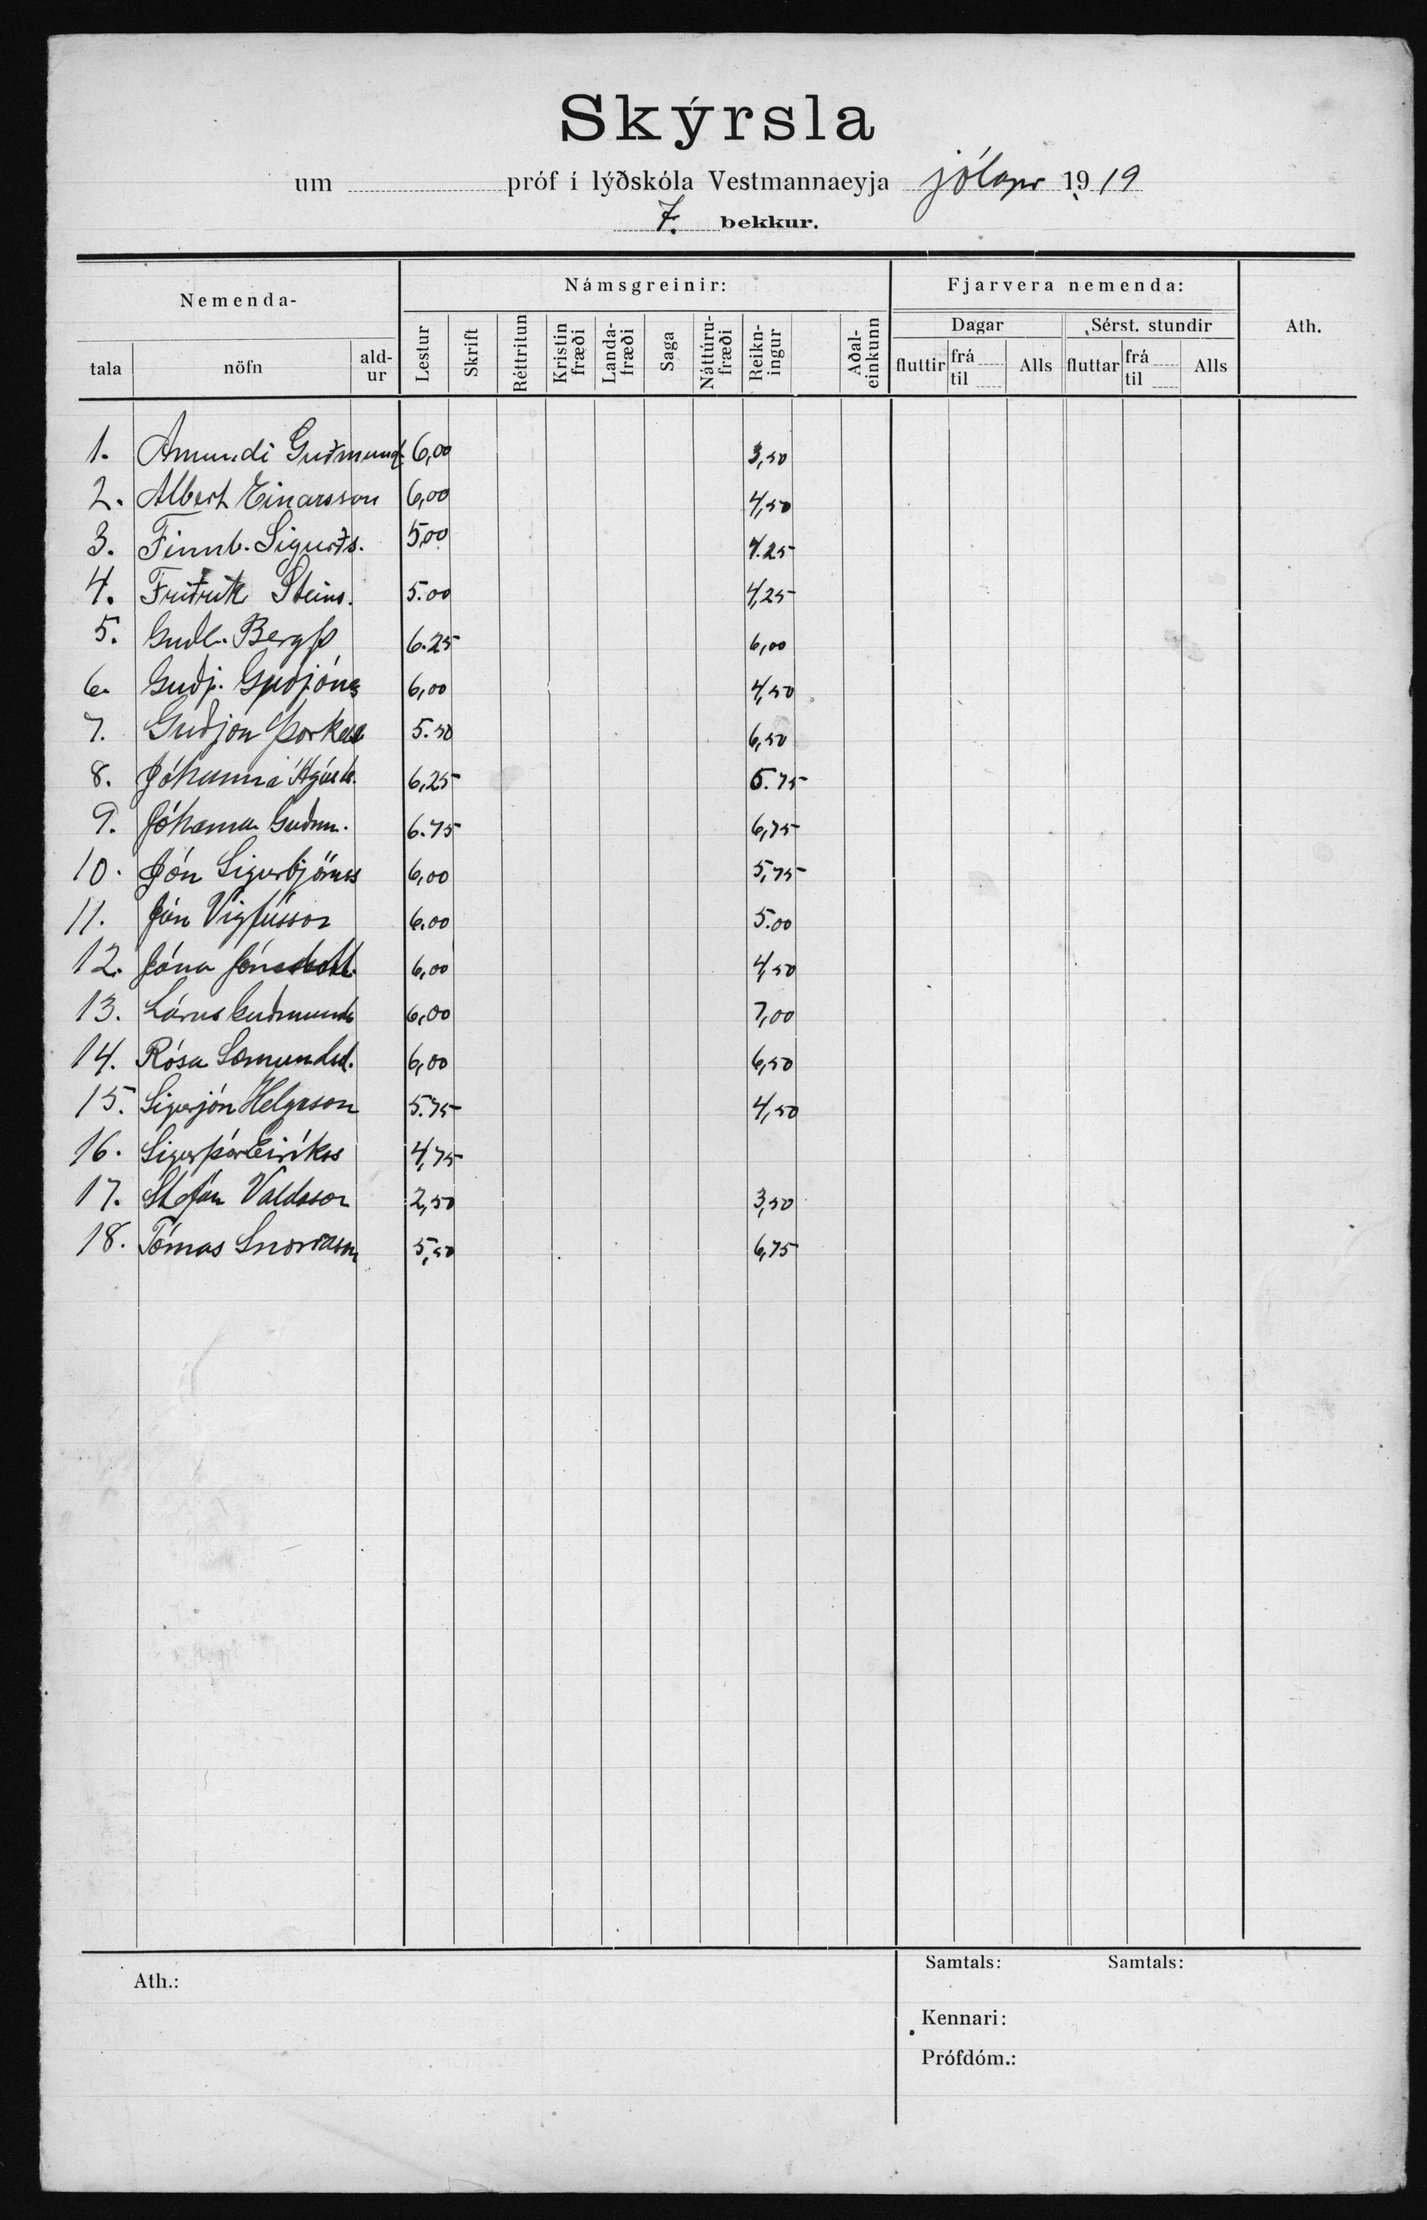 Skýrsla
um próf í lýðskóla Vestmannaeyja jólapr 1919
7. bekkur.
Nemenda- Námsgreinir: Fjarvera nemenda: Ath.
Dagar Sérst. stundir
tala nöfn ald-ur Lestur Skrift Réttritun Kristin fræði Landa-fræði Saga Náttúru-fræði Reikn-ingur Aðal-einkunn fluttir frá til Alls fluttar frá til Alls
1. Amundi Guðmund. 6,00 3,50
2. Albert Einarsson 6,00 4,50
3. Finnb. Sigurðs. 5,00 4.25
4. Friðrik Steins. 5.00 4,25
5. Guðl. Bergþ 6.25 6,00
6. Guðj. Guðjóns 6,00 4,50
7. Guðjon Þorkels 5.50 6,50
8. Jóhanna Ágúst. 6,25 5.75
9. Jóhanna Guðm. 6.75 6,75
10. Jón Sigurbjörnss 6,00 5,75
11. Jón Vigfússon 6.00 5.00
12. Jóna Jónsdótt. 6,00 4,50
13. Lárus Guðmunds 6,00 7,00
14. Rósa Sæmundsd. 6,00 6,50
15. Sigurjón Helgason 5.75 4,50
16. Sigurþór Eiríkss 4,75
17. Stefán Valdason 2,50 3,50
18. Tómas Snorrason 5,50 6,75
Ath.: Samtals: Samtals:
Kennari:
Prófdóm.: